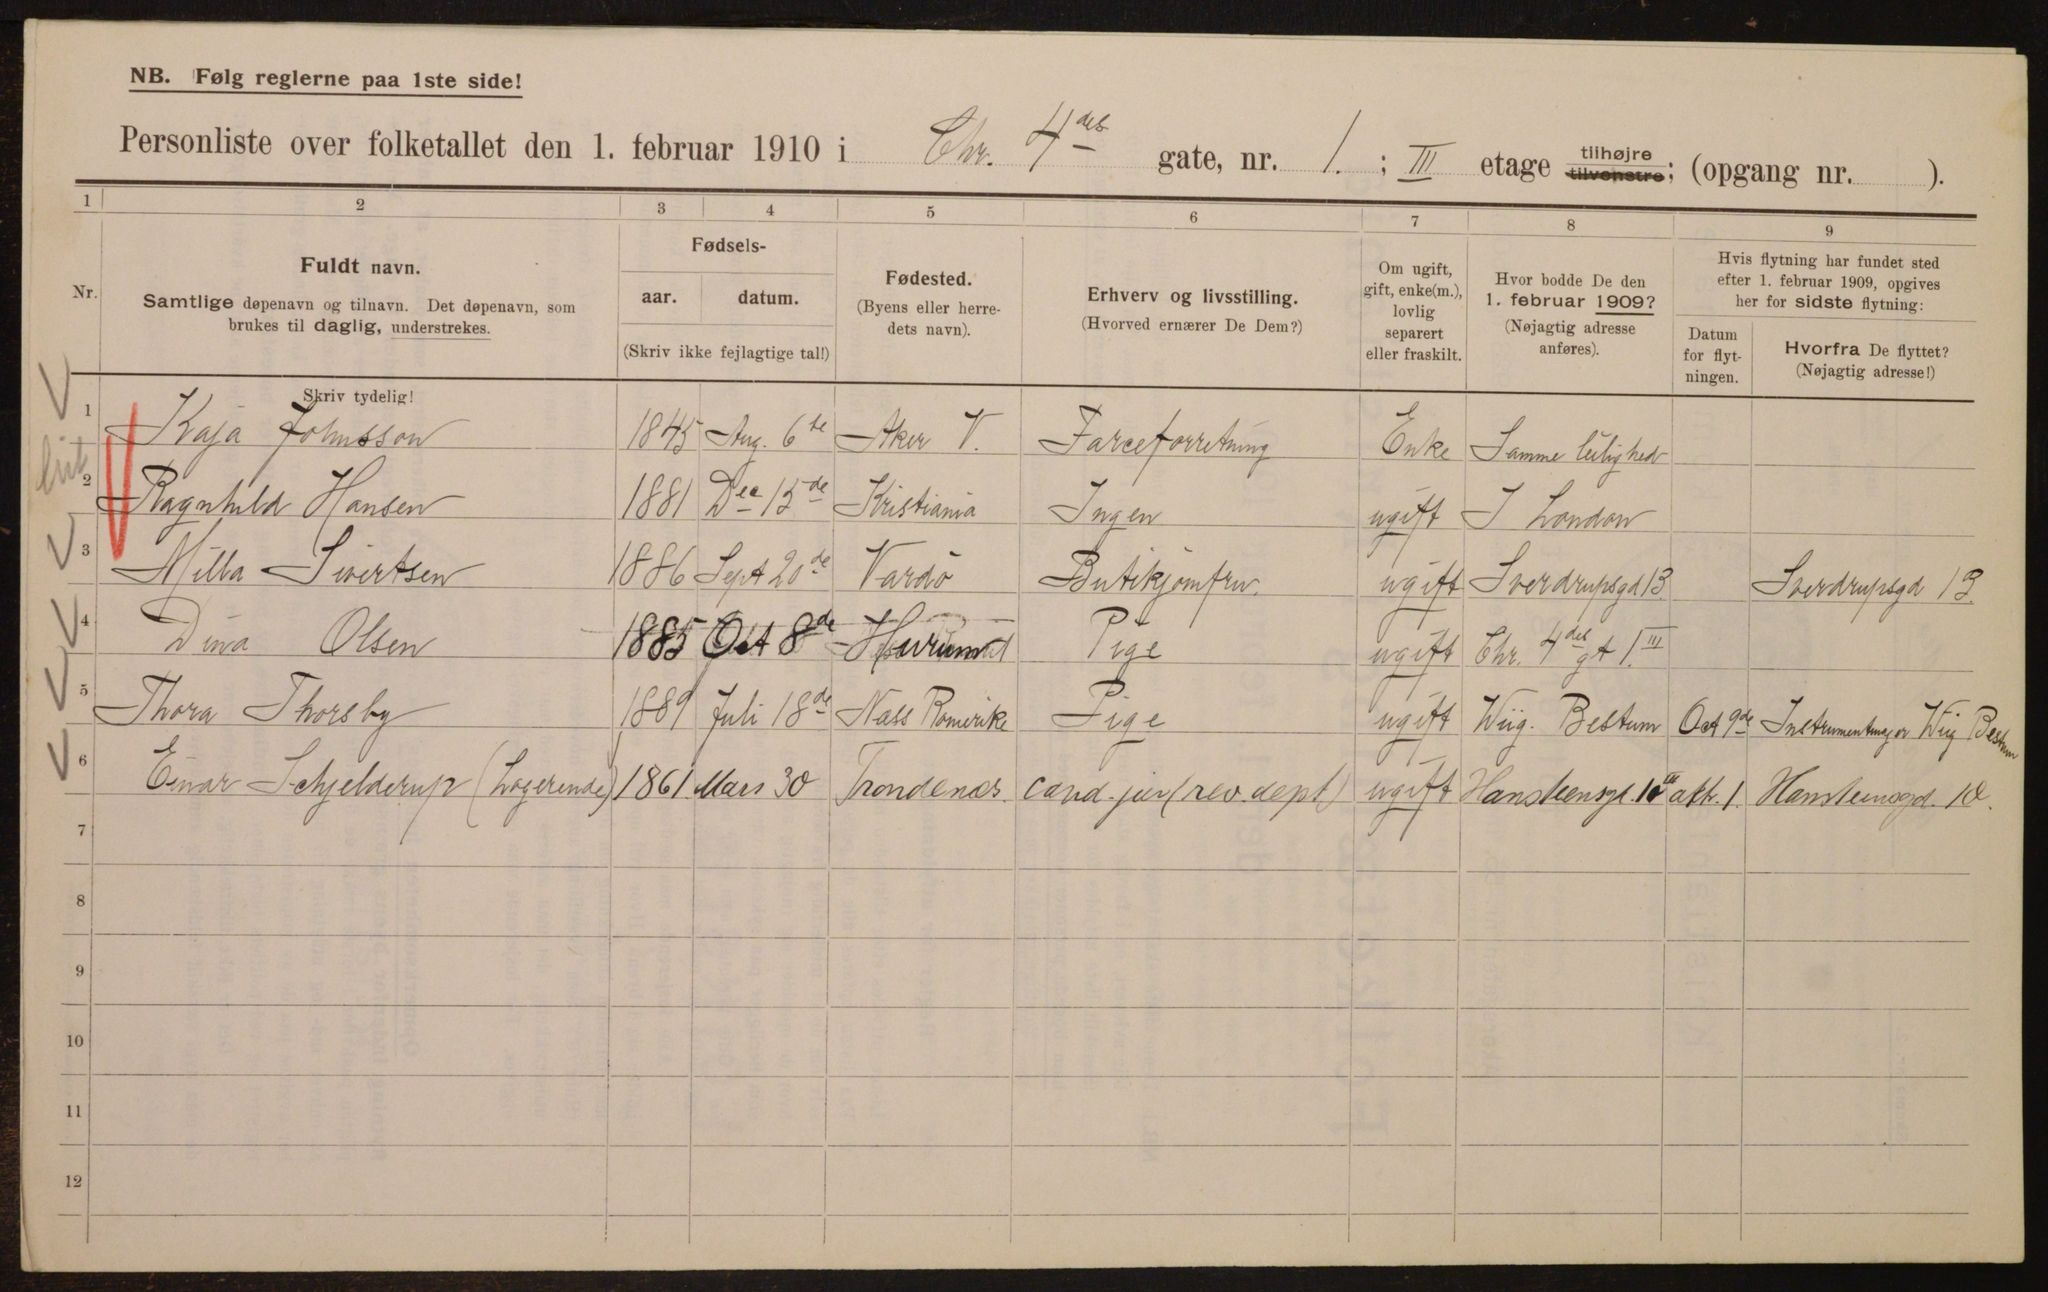 NB. Følg reglerne paa 1ste side!
Personliste over folketallet den 1. februar 1910 i Chr. 4des gate, nr. 1. ; III etage tilhøjre tilvenstre; (opgang nr. ).
1 2 3 4 5 6 7 8 9
Nr.
Fuldt navn.
Samtlige døpenavn og tilnavn. Det døpenavn, som
brukes til daglig, understrekes.
Skriv tydelig!
Fødsels-
aar. datum.
(Skriv ikke fejlagtige tal!)
Fødested.
(Byens eller herre-
dets navn).
Erhverv og livsstilling.
(Hvorved ernærer De Dem?)
Om ugift,
gift, enke(m.),
lovlig
separert
eller fraskilt.
Hvor bodde De den
1. februar 1909?
(Nøjagtig adresse
anføres).
Hvis flytning har fundet sted
efter 1. februar 1909, opgives
her for sidste flytning:
Datum
for flyt-
ningen.
Hvorfra De flyttet?
(Nøjagtig adresse!)
1 Kaja Johnsson 1845 Aug. 6te Aker V. Farceforretning Enke Samme leilighed
2 Ragnhild Hansen 1881 Dec 15de Kristiania Ingen ugift I London
3 Milla Sivertsen 1886 Sept 20de Vardö Butikjomfru. ugift Sverdrupsgd 13 Sverdrupsgd 13
4 Dina Olsen 1885 Oct 8de Pige ugift Chr. 4des gt 1 III
5 Thora Thorsby 1889 Juli 18de Næss Romerike Pige ugift Wiig. Bestum Oct 9de Instrumentmager Wiig Bestum
6 Einar Schjelderup (Logerende) 1861 Mars 30 Trondenæs. cand. jur (rev. dept) ugift Hansteensgd. 10 III okt. 1 Hansteensgd. 10.
7
8
9
10
11
12